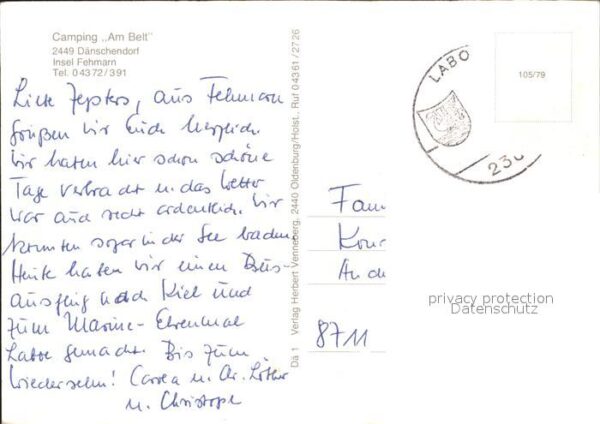 Camping „Am Belt"
2449 Dänschendorf
Insel Fehmarn
Tel. 0 43 72 / 3 91
Liebe Zepters, aus Fehmarn
grüßen wir Euch herzlich.
Wir haben hier schon schöne
Tage verbracht u. das Wetter
war auch recht ordentlich. Wir
konnten sogar in der See baden.
Heute haben wir einen Bus-
ausflug nach Kiel und
zum Marine-Ehrenmal
Laboe gemacht. Bis zum
Wiedersehn! Carola u. Lothar
u. Christoph
Dä 1 Verlag Herbert Venneberg, 2440 Oldenburg/Holst. Ruf 0 43 61 / 27 26
LABO
23
105/79
Fam
Kour
An de
8711
privacy protection
Datenschutz